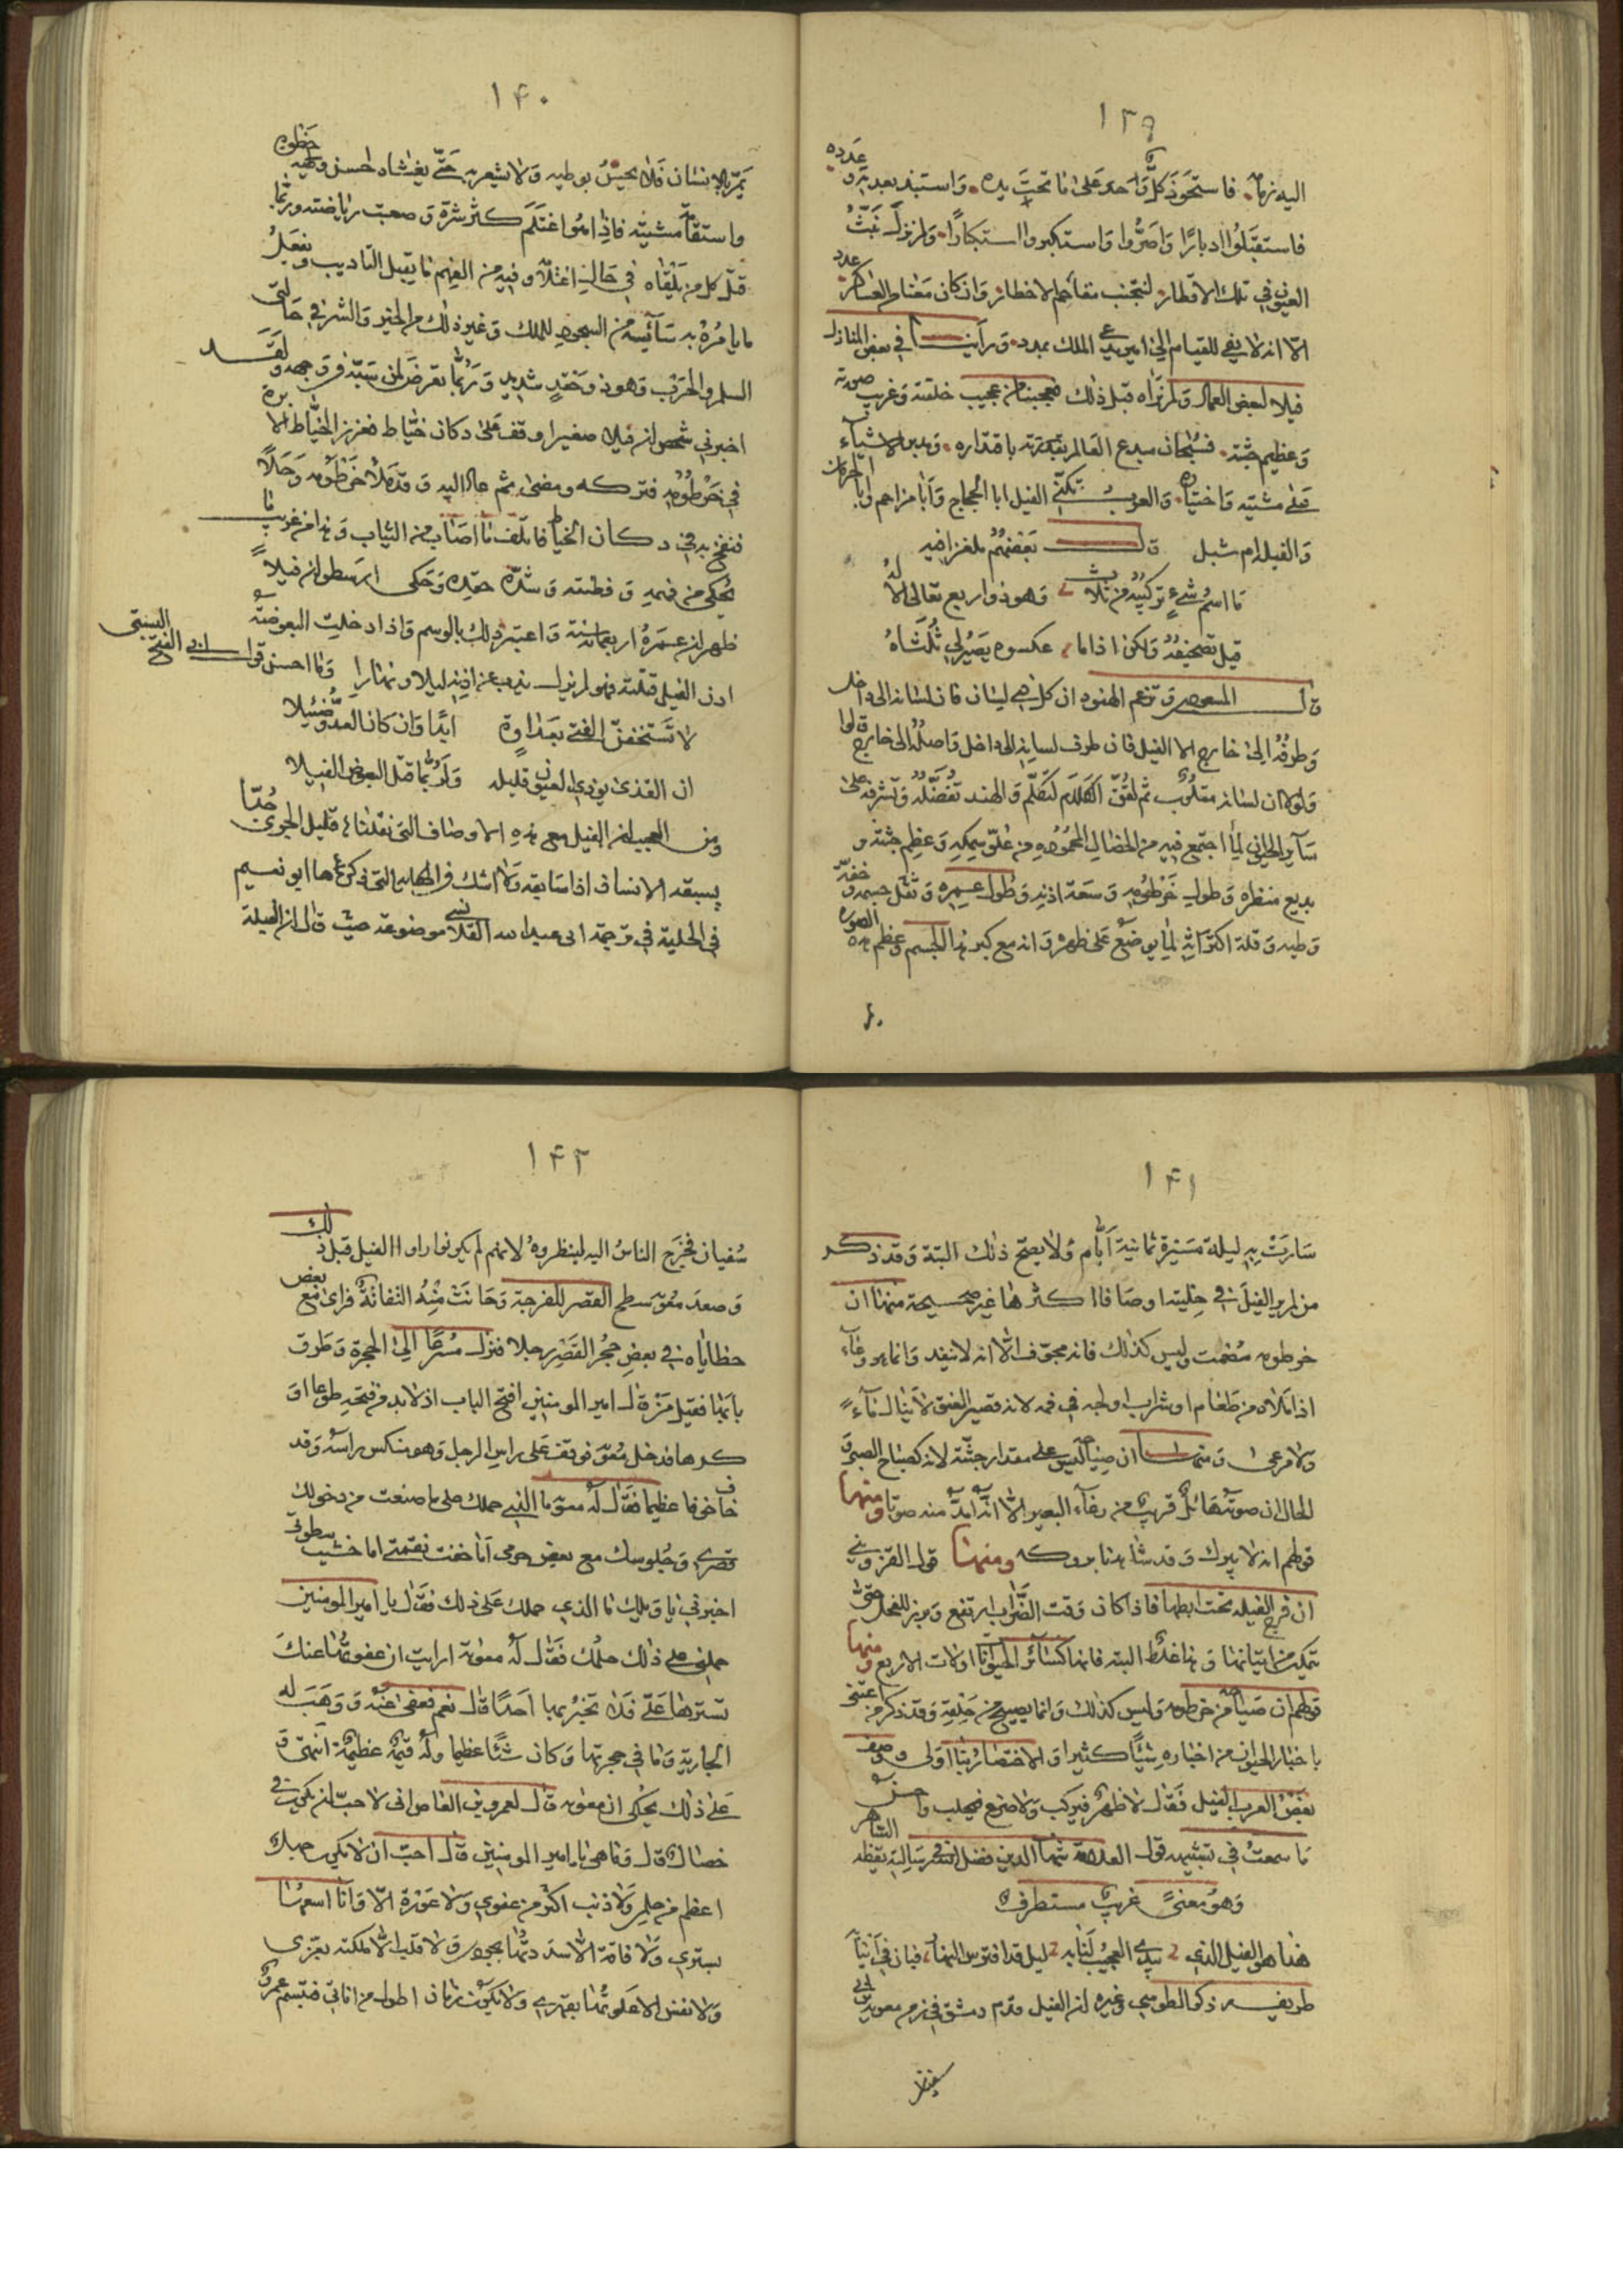 ١٣٩
اليه زمامه فاستحوذ كل واحد على ما تحت يده واستبد بعدته وعدده
فاستقبلوا ادبارا واصروا واستكبروا استكبارا ولم نزل نحث
العيون في تلك الاقطار لنجتنب مقاحم الاخطار وان كان معنا من العساكر عدد
الا انه لا يفي للقيام الى امير يدعى الملك بمدد ورأيت في بعض المنازل
فيلا لبعض العمال ولم نراه قبل ذلك فعجبنا من عجيب خلقته وغريب صورته
وعظيم جثته فسبحان مبدع العالم بقدرته باقتداره ومدبر الاشياء
على مشيته واختياره والعرب تكنّي الفيل ابا الحجاج وابا مزاحم وابا الحرمان
والفيلة ام شبل قال بعضهم ملغزا فيه
ما اسم شيء تركيبه من ثلاث وهو ذو اربع تعالى الاله
قيل تصحيفه ولكن اذا ما عكسوه يصير لي ثلثاه
قال المسعودي وتزعم الهنود ان كل ذي لسان فان لسانه الى داخل
وطرفه الى خارج الا الفيل فان طرف لسانه الى داخل واصله الى خارج قالوا
ولولا ان لسانه مقلوب ثم لقن الكلام لتكلم والهند تفضله وتشرفه على
سائر الحيوان لما اجتمع فيه من الخصال المحموده من علو سمكه وعظم جثته و
بديع منظره وطول خرطومه وسعة اذنه وطول عمره وثقل جسمه وخفة
وطيه وقلة اكتراثه لما يوضع على ظهره وانه مع كبر هذا الجسم وعظم هذه الصوره
١٤٠
يمر بالانسان فلا يحس بوطيه ولا يشعر به حتى يغشاه لحسن وطيه خطوه
واستقامة مشيته فاذا ما اغتلم كثر شره وصعبت رياضته وربما
قتل كل من يلقاه في حال اغتلامه وفيه من الفهم ما يقبل التاديب ويفعل
ما يامره به سائسه من السجود للملك وغير ذلك من الخير والشر في حالتي
السلم والحرب وهو ذو حقد شديد وربما تعرض لمن سبه فوق جهده ولقد
اخبرني شخص ان فيلا صغيرا وقف على دكان خياط فغرز الخياط الابرة
في خرطومه فتركه ومضى ثم عاد اليه وقد ملا خرطومه وحلا
فنفخ به في دكان الخياط فاتلف ما اصاب من الثياب وهذا من غريب ما
يحكى من فهمه وفطنته وشدة حقده وحكى ارسطو ان فيلا
ظهر ان عمره اربعمائة سنة واعتبر ذلك بالوسم واذا دخلت البعوضة
اذن الفيل قتلته فهو لم يزل يذب عن اذنه ليلا ونهارا وما احسن قول ابي الفتح البستي
لا تستخفن الفتى بعداوة ابدا وان كان العدو ضئيلا
ان القذى يوذي العيون قليله ولربما قتل البعوض الفيلا
ومن العجيب ان الفيل مع هذه الاوصاف التي نقلناها قليل الجري جدا
يسبقه الانسان اذا سابقه ولا اشك في الحكاية التي ذكرها ابو نعيم
في الحلية في ترجمة ابى عبد الله القلانسي موضوعة حيث قال ان الفيلة
١٤١
سارت به ليلة مسيرة ثمانية ايام ولا يصح ذلك البتة وقد ذكر
من لم ير الفيل في حليته اوصافا اكثرها غير صحيحة منها ان
خرطومه مصمت وليس كذلك فانه مجوف الا انه لا ينفد وانما هو وعاء
اذا ملاه من طعام او شراب اولجه في فمه لانه قصير العنق لا ينال ماء
ولا مرعى ومنها ان صياحه ليس على مقدار جثته لانه كصياح الصبي و
الحال ان صوته هائل قريب من رغاء البعير الا انه امد منه صوتا ومنها
قولهم انه لا يبرك وقد شاهدنا بروكه ومنها قول القزويني
ان فرج الفيله تحت ابطها فاذا كان وقت الضراب ارتفع وبرز للفحل حتى
يتمكن من اتيانها وهذا غلط البته فانها كسائر الحيوانات اولات الاربع ومنها
قولهم ان صياحه من خرطومه وليس كذلك وانما يصيح من حلقه وقد ذكر من اعتنى
باخبار الحيوان من اخباره شيئا كثيرا والاختصار بنا اولى ووصف
بعض العرب الفيل فقال لا ظهر فيركب ولا ضرع فيحلب واحسن
ما سمعت في تشبيهه قول العلامة شهاب الدين فضل الله في رسالة يقظة الساهر
وهو معنى غريب مستطرف
هذا هو الفيل الذي يبدي العجيب لنا به ليل قد افترس النهار فبان في انيابه
طريفه ذكر الطرطوشي وغيره ان الفيل قدم دمشق في زمن معوية بن ابي
سفيان
١٤٢
سفيان فخرج الناس اليه لينظروه لانهم لم يكونوا راوا الفيل قبل ذلك
وصعد معوية سطح القصر للفرجة وحانت منه التفاتة فراى مع بعض
حظاياه في بعض حجر القصر رجلا فنزل مسرعا الى الحجرة وطرق
بابها فقيل من قال امير المومنين افتح الباب اذ لا بد من فتحه طوعا او
كرها فدخل معوية فوقف على راس الرجل وهو منكس راسه وقد
خاف خوفا عظيما فقال له معوية ما الذي حملك على ما صنعت من دخولك
قصري وجلوسك مع بعض حرمي اما خفت نقمتي اما خشيت سطوتي
اخبرني يا ويلك ما الذي حملك على ذلك فقال يا امير المومنين
حملني على ذلك حلمك فقال له معوية ارايت ان عفوت عنك
تسترها علي فلا تخبر بها احدا قال نعم فعفى عنه ووهب له
الجارية وما في حجرتها وكان شيئا عظيما وله قيمة عظيمة انتهى و
على ذلك يحكى ان معوية قال لعمرو بن العاص اني لاحب ان يكون في
خصال قال وما هي يا امير المومنين قال احب ان لا يكون جهل
اعظم من حلمي ولا ذنب اكثر من عفوي ولا عورة الا وانا اسعها
بستري ولا فاقة الا سددتها بجودي ولا قلب الا ملكته بعزي
ولا نفس الا علوتها بقهري ولا يكون زمان اطول من اناتي فتبسم عمرو